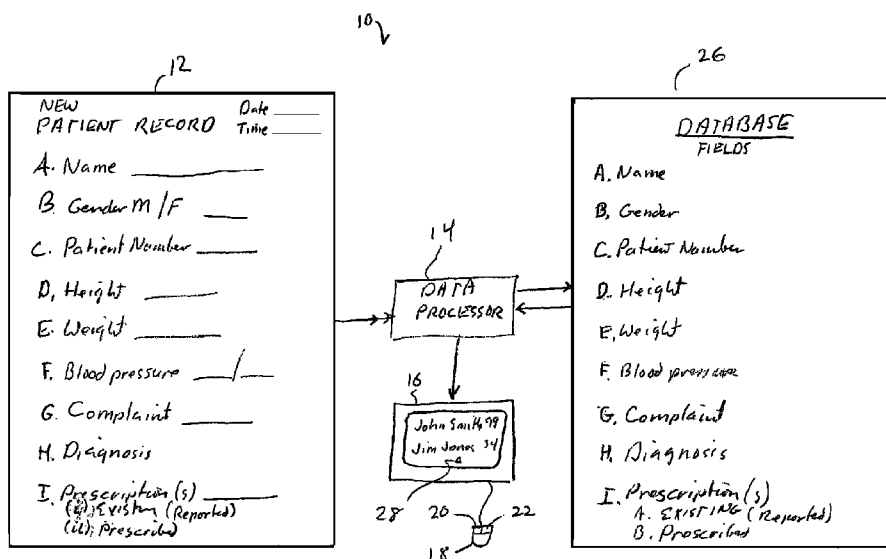 10
12
NEW
PATIENT RECORD
Date
Time
A. Name
B. Gender M/F
C. Patient Number
D, Height
E. Weight
F. Blood pressure /
G. Complaint
H. Diagnosis
I. Prescription(s)
(i); Existing (Reported)
(ii); Prescribed
14
DATA
PROCESSOR
16
John Smith 79
Jim Jones 34
28
20
22
18
26
DATABASE
FIELDS
A. Name
B, Gender
C. Patient Number
D. Height
E, Weight
F. Blood pressure
G, Complaint
H. Diagnosis
I. Prescription(s)
A. EXISTING (Reported)
B. Prescribed